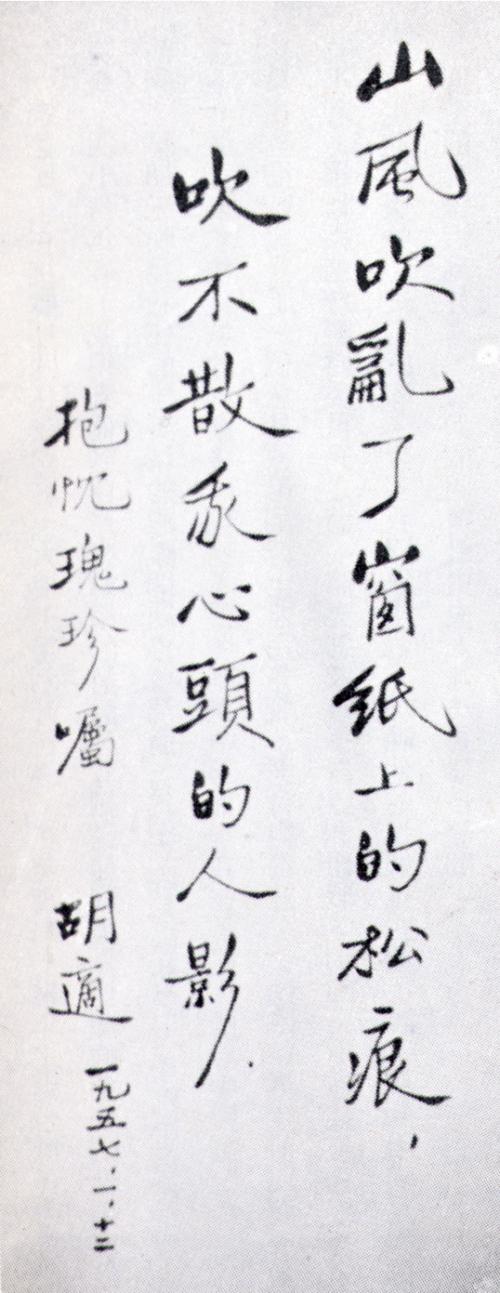 山風吹亂了窗紙上的松痕，
吹不散我心頭的人影．
抱忱瑰珍囑　胡適　一九五七．一．十二